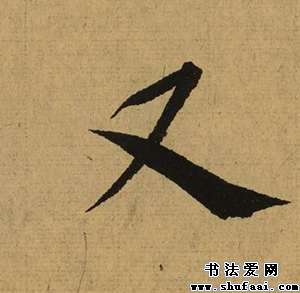 又
书法爱网
www.shufaai.com